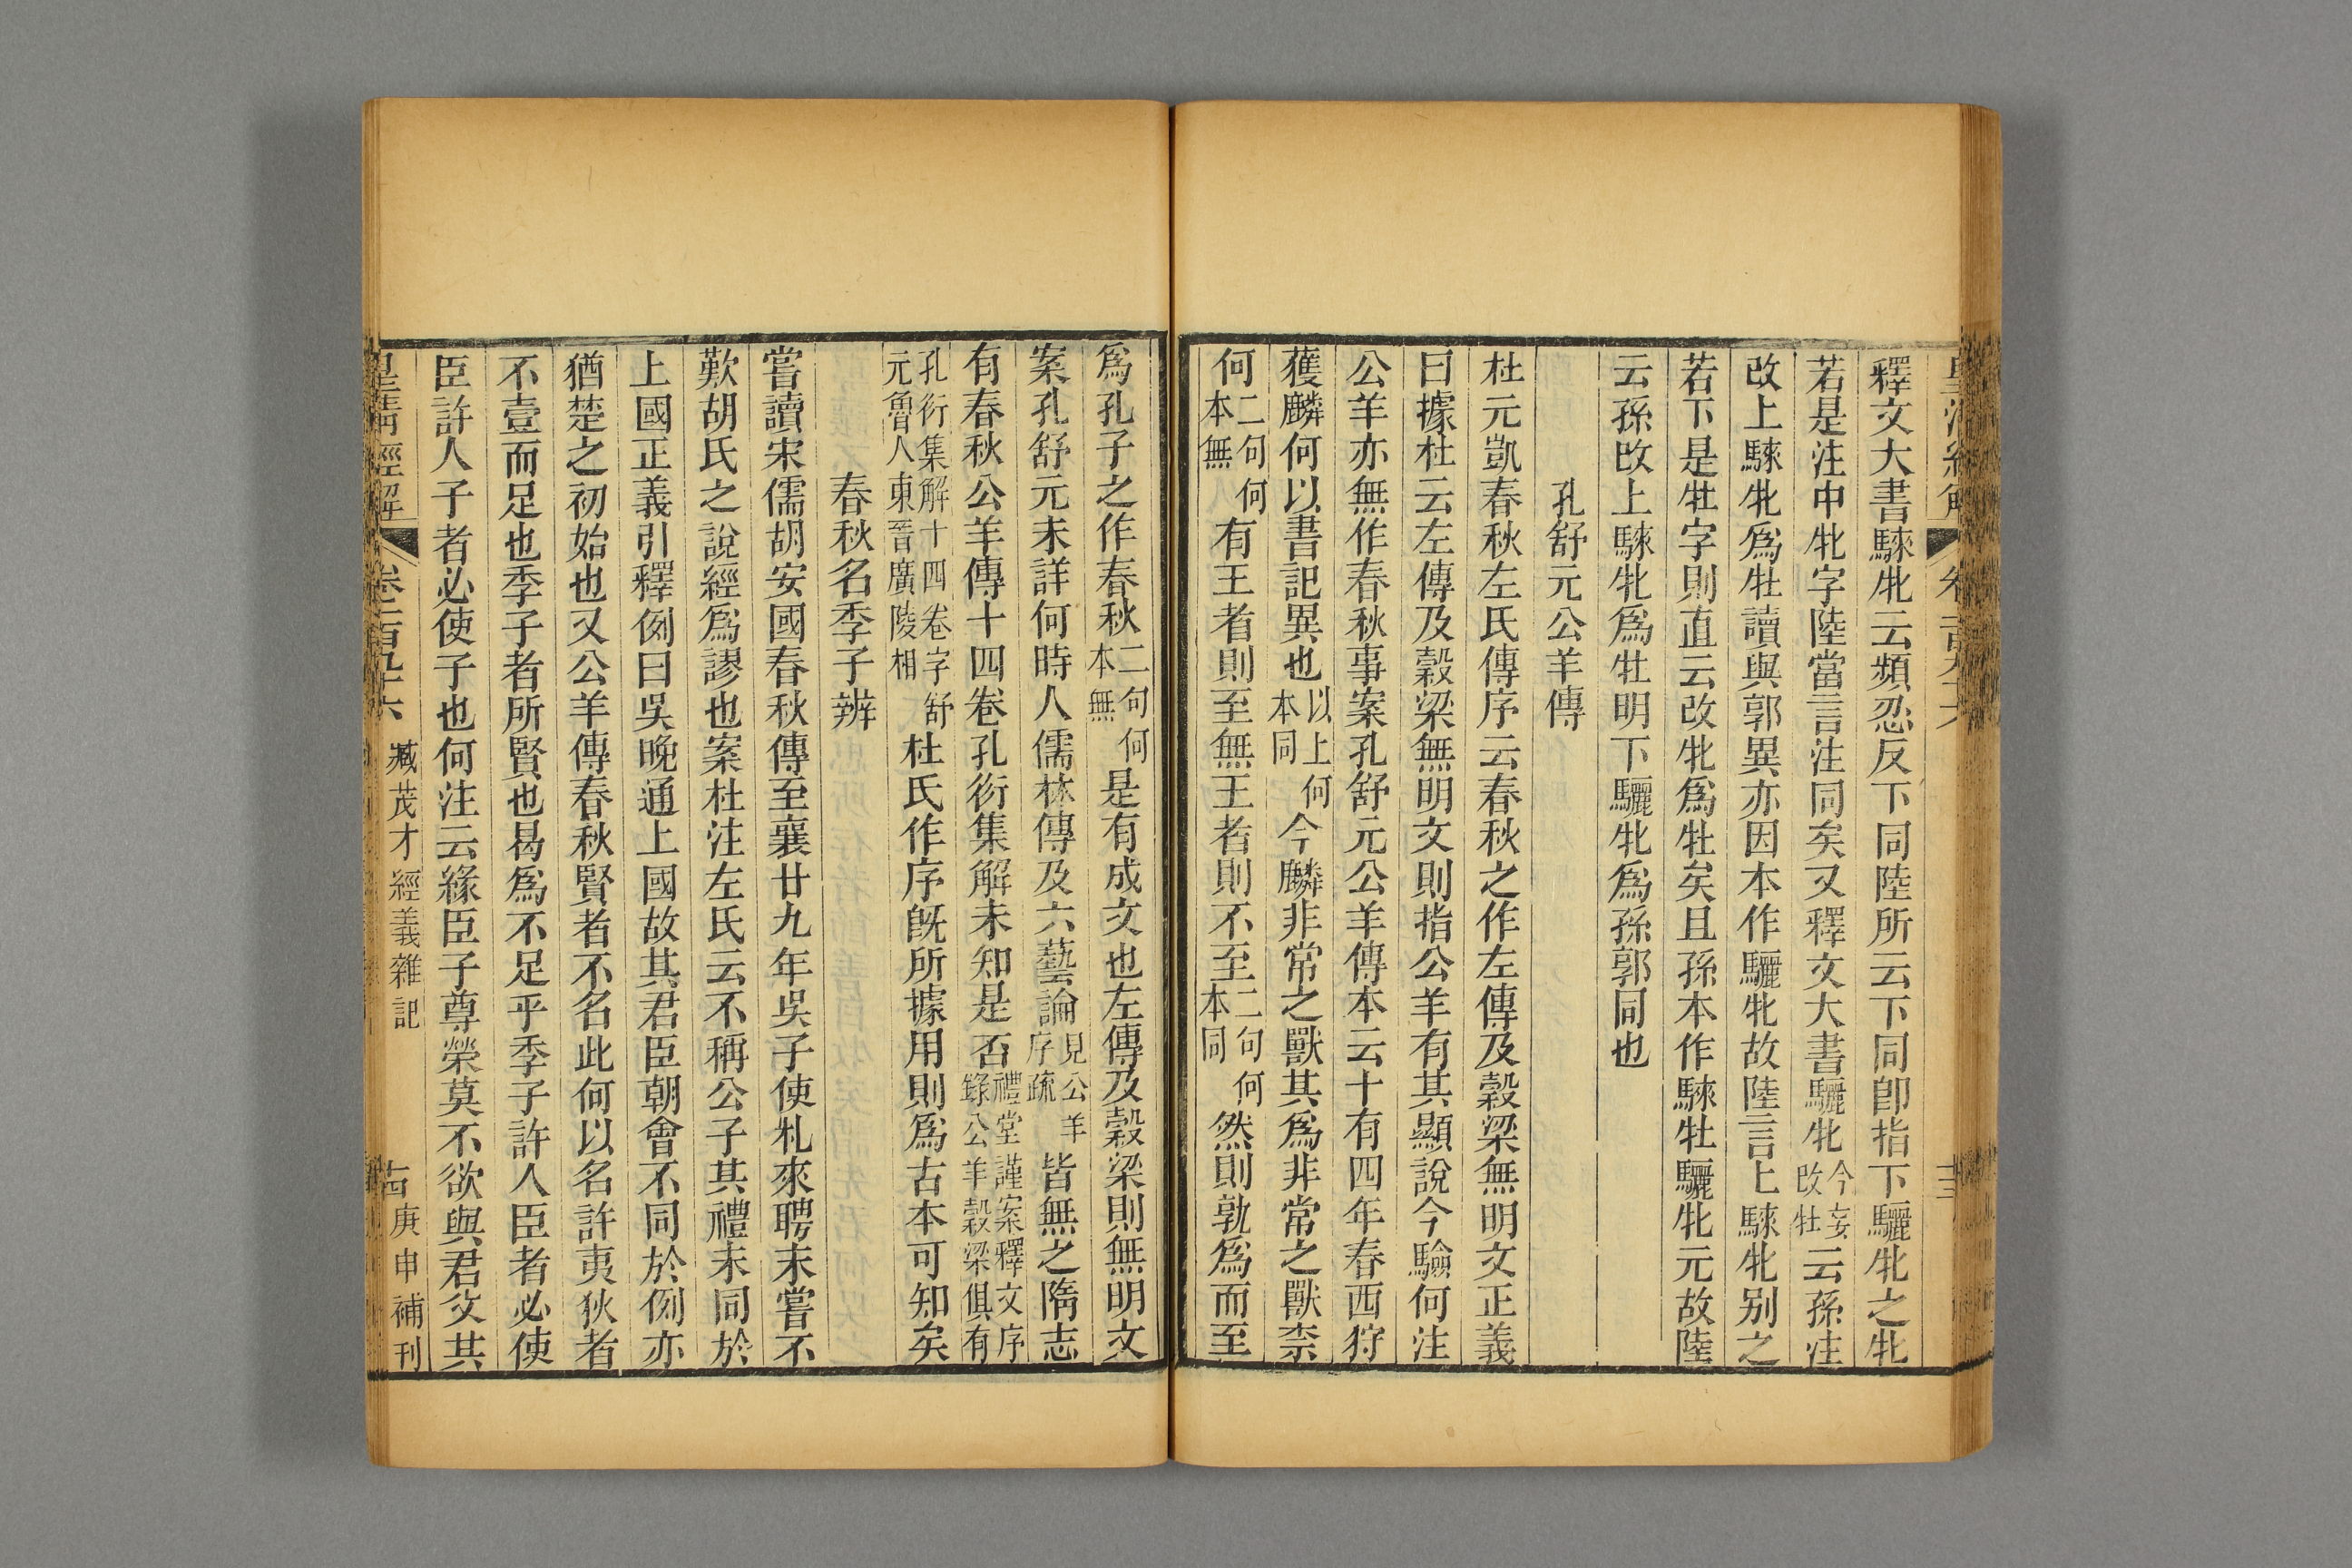 皇清經解
卷一百九十六
釋文大書騋牝云頻忍反下同陸所云下同卽指下驪牝之牝
若是注中牝字陸當言注同矣又釋文大書驪牝今妄改牡云孫注
改上騋牝爲牡讀與郭異亦因本作驪牝故陸言上騋牝别之
若下是牡字則直云改牝爲牡矣且孫本作騋牡驪牝元故陸
云孫改上騋牝爲牡明下驪牝爲孫郭同也
孔舒元公羊傳
杜元凱春秋左氏傳序云春秋之作左傳及穀梁無明文正義
曰據杜云左傳及穀梁無明文則指公羊有其顯說今驗何注
公羊亦無作春秋事案孔舒元公羊傳本云十有四年春西狩
獲麟何以書記異也以上何本同今麟非常之獸其爲非常之獸柰
何二句何本無有王者則至無王者則不至二句何本同然則孰爲而至
爲孔子之作春秋二句何本無是有成文也左傳及穀梁則無明文
案孔舒元未詳何時人儒林傳及六藝論見公羊序疏皆無之隋志
有春秋公羊傳十四卷孔衍集解未知是否禮堂謹案釋文序錄公羊穀梁俱有
孔衍集解十四卷字舒元魯人東晉廣陵相杜氏作序旣所據用則爲古本可知矣
春秋名季子辨
嘗讀宋儒胡安國春秋傳至襄廿九年吳子使札來聘未嘗不
歎胡氏之說經爲謬也案杜注左氏云不稱公子其禮未同於
上國正義引釋例曰吳晚通上國故其君臣朝會不同於例亦
猶楚之初始也又公羊傳春秋賢者不名此何以名許夷狄者
不壹而足也季子者所賢也曷爲不足乎季子許人臣者必使
臣許人子者必使子也何注云緣臣子尊榮莫不欲與君父共
皇清經解
卷二百九十六
臧茂才經義雜記
古
庚申補刊